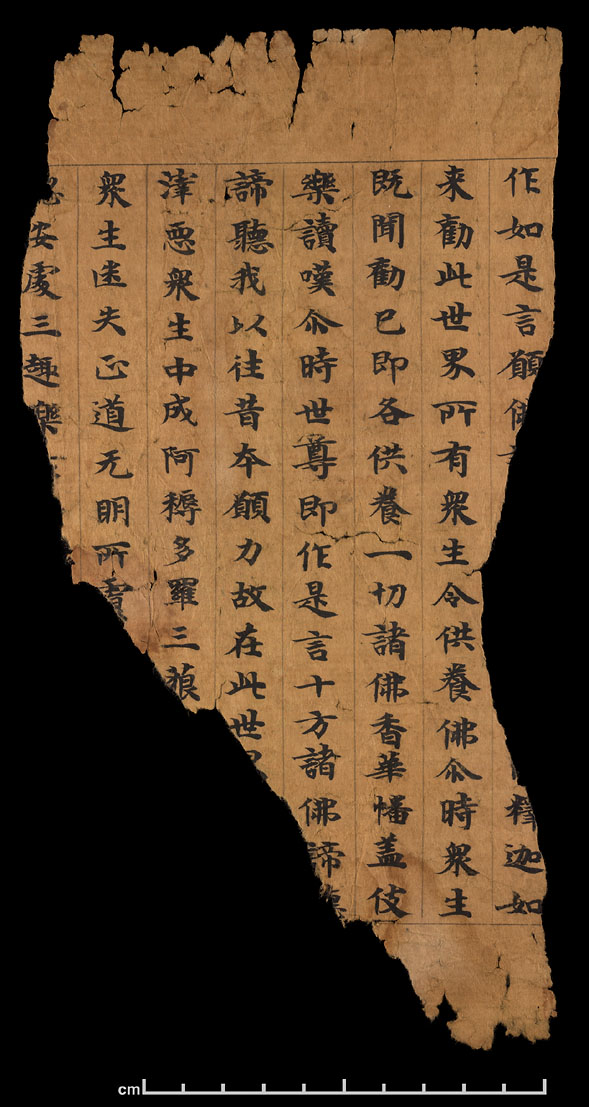 作如是言願佛釋迦如
来勸此世界所有衆生令供養佛尒時衆生
既聞勸已即各供養一切諸佛香華幡盖伎
樂讀嘆尒時世尊即作是言十方諸佛諦聽
諦聽我以往昔本願力故在此世
滓惡衆生中成阿耨多羅三藐
衆生迷失正道无明所
安處三趣樂
cm